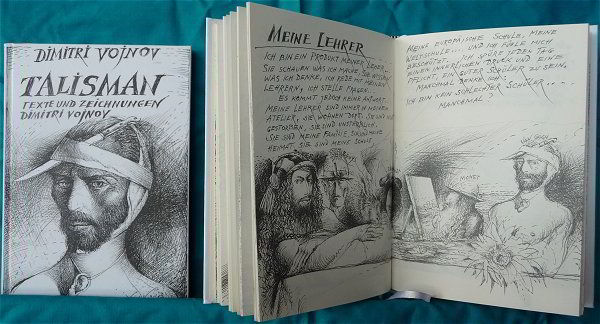 DIMITRI VOJNOV
TALISMAN
TEXTE UND ZEICHNUNGEN
DIMITRI VOJNOV
MEINE LEHRER
ICH BIN EIN PRODUKT MEINER LEHRER.
SIE SCHAUEN WAS ICH MACHE, SIE WISSEN
WAS ICH DENKE, ICH REDE MIT MEINEN
LEHRERN, ICH STELLE FRAGEN.
ES KOMMT JEDOCH KEINE ANTWORT.
MEINE LEHRER SIND IMMER IN MEINEM
ATELIER, SIE WOHNEN DORT. SIE SIND NIE
GESTORBEN, SIE SIND UNSTERBLICH.
SIE SIND MEINE FAMILIE, SIE SIND MEINE
HEIMAT SIE SIND MEINE SCHULE
MEINE EUROPÄISCHE SCHULE, MEINE
WELTSCHULE... UND ICH FÜHLE MICH
BESCHÜTZT. ICH SPÜRE JEDEN TAG
EINEN INNERLICHEN DRUCK UND EINE
PFLICHT, EIN GUTER SCHÜLER ZU SEIN.
MANCHMAL DENKE ICH:
ICH BIN KEIN SCHLECHTER SCHÜLER....
MANCHMAL?